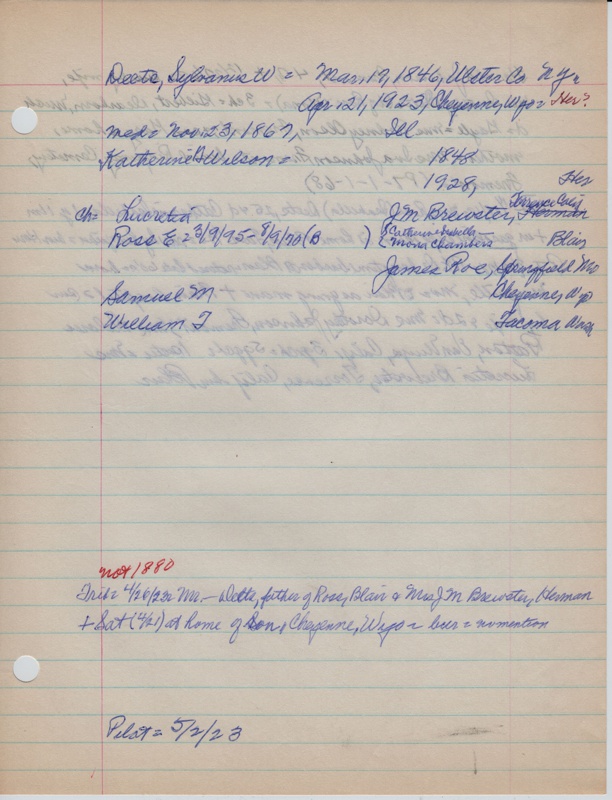 Deets, Sylvanus W = Mar, 17, 1846, Ulster Co N.Y. =
Apr 21, 1923, Cheyenne, Wyo = Her?
med = Nov. 23, 1867, Ill
Katherine B Wilson = 1848
1928, Her
ch = Lucretia J.M Brewster, Torrance Calif Herman
Ross E = 3/9/95 - 8/9/70 (B ) { Catherine & Mona Chambers Blair
James Roe, Springfield Mo
Samuel M. Cheyenne, Wyo
William T Tacoma Wash
not 1880
Trib = 4/26/23 = Mr. — Deets, father of Ross, Blair & Mrs J M Brewster, Herman
+ Sat (4/21) at home of son, Cheyenne, Wyo = bur = no mention
Pilot = 5/2/23